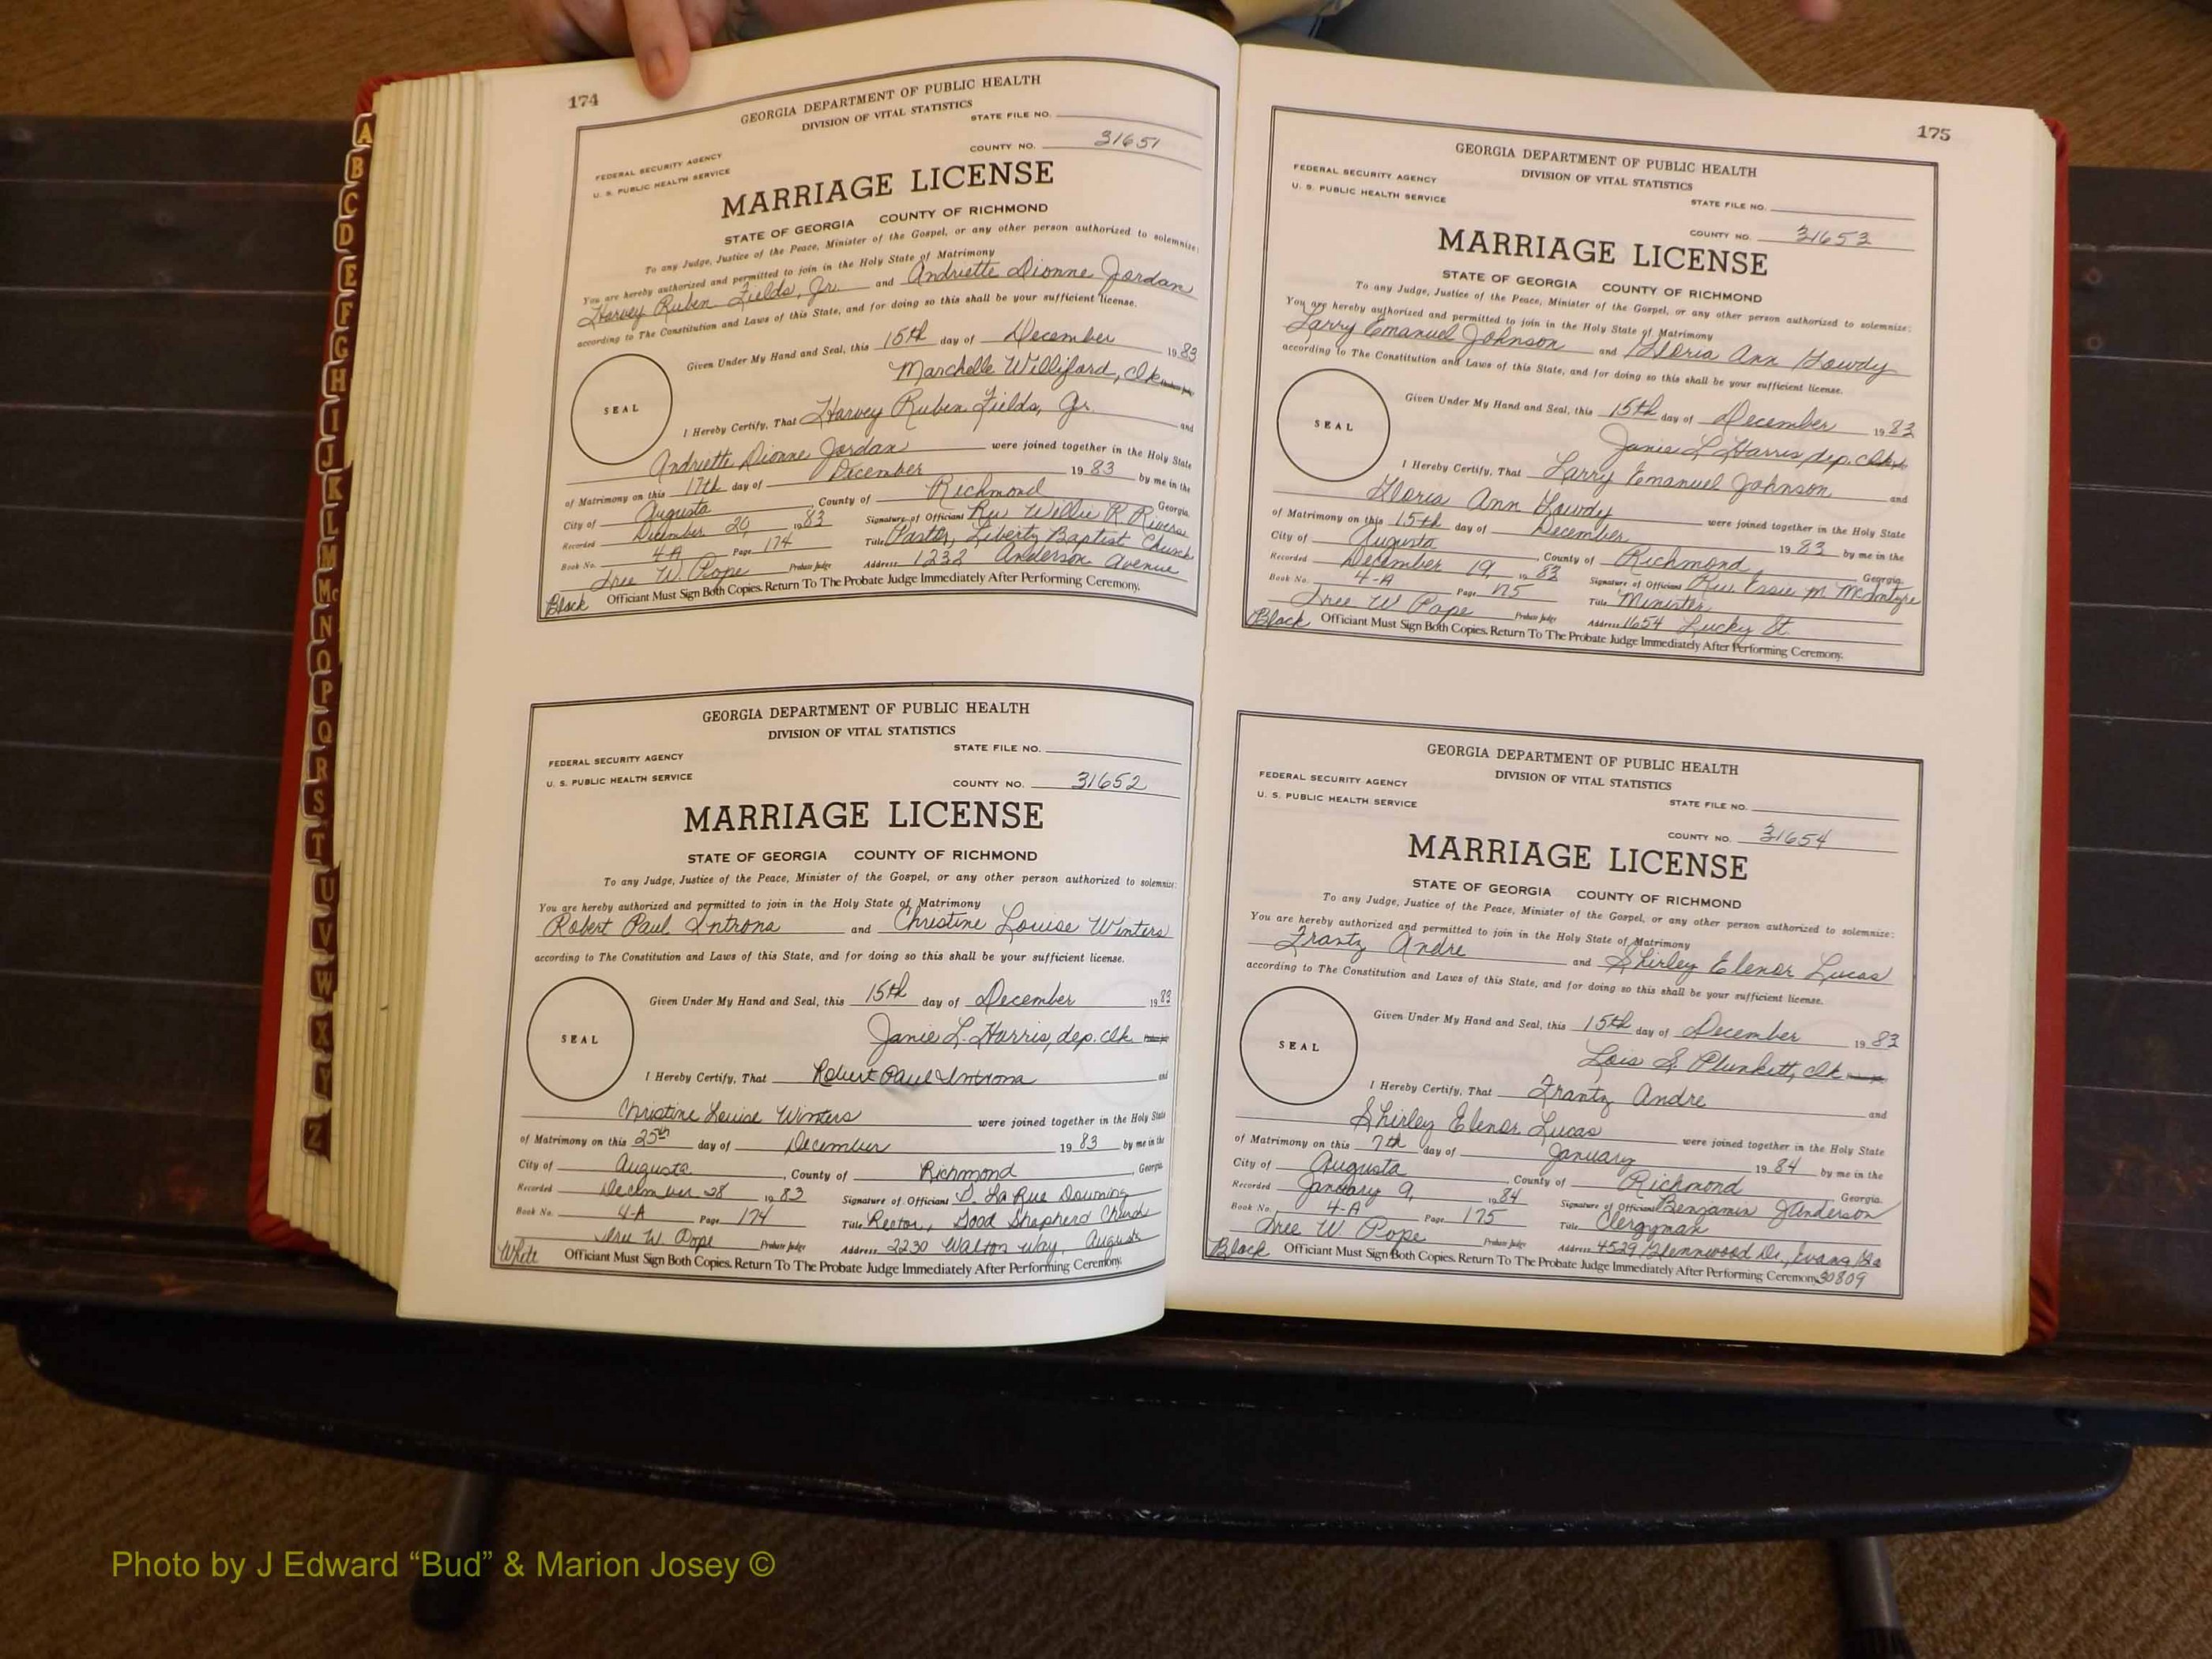 174
GEORGIA DEPARTMENT OF PUBLIC HEALTH
DIVISION OF VITAL STATISTICS
STATE FILE NO.
FEDERAL SECURITY AGENCY
U. S. PUBLIC HEALTH SERVICE
COUNTY NO. 31651
MARRIAGE LICENSE
STATE OF GEORGIA COUNTY OF RICHMOND
To any Judge, Justice of the Peace, Minister of the Gospel, or any other person authorized to solemnize:
You are hereby authorized and permitted to join in the Holy State of Matrimony
Harvey Ruben Fields, Jr. and Andriette Dionne Jordan
according to The Constitution and Laws of this State, and for doing so this shall be your sufficient license.
Given Under My Hand and Seal, this 15th day of December 1983
Marchelle Williford, clk
SEAL
I Hereby Certify, That Harvey Ruben Fields, Jr. and
Andriette Dionne Jordan were joined together in the Holy State
of Matrimony on this 17th day of December 1983 by me in the
City of Augusta County of Richmond Georgia.
Recorded December 20, 1983 Signature of Officiant Rev Willie R Rivers
Book No. 4-A Page 174 Title Pastor, Liberty Baptist Church
Iree W. Pope Probate Judge Address 1232 Anderson Avenue
Black Officiant Must Sign Both Copies. Return To The Probate Judge Immediately After Performing Ceremony.
GEORGIA DEPARTMENT OF PUBLIC HEALTH
DIVISION OF VITAL STATISTICS
STATE FILE NO.
FEDERAL SECURITY AGENCY
U. S. PUBLIC HEALTH SERVICE
COUNTY NO. 31652
MARRIAGE LICENSE
STATE OF GEORGIA COUNTY OF RICHMOND
To any Judge, Justice of the Peace, Minister of the Gospel, or any other person authorized to solemnize:
You are hereby authorized and permitted to join in the Holy State of Matrimony
Robert Paul Introna and Christine Louise Winters
according to The Constitution and Laws of this State, and for doing so this shall be your sufficient license.
Given Under My Hand and Seal, this 15th day of December 1983
Janie L. Harris, dep. clk
SEAL
I Hereby Certify, That Robert Paul Introna and
Christine Louise Winters were joined together in the Holy State
of Matrimony on this 25th day of December 1983 by me in the
City of Augusta, County of Richmond, Georgia
Recorded December 28 1983 Signature of Officiant La Rue Downing
Book No. 4-A Page 174 Title Rector, Good Shepherd Church
Iree W. Pope Probate Judge Address 2230 Walton Way, Augusta
White Officiant Must Sign Both Copies. Return To The Probate Judge Immediately After Performing Ceremony.
175
GEORGIA DEPARTMENT OF PUBLIC HEALTH
DIVISION OF VITAL STATISTICS
FEDERAL SECURITY AGENCY
U. S. PUBLIC HEALTH SERVICE
STATE FILE NO.
COUNTY NO. 31653
MARRIAGE LICENSE
STATE OF GEORGIA COUNTY OF RICHMOND
To any Judge, Justice of the Peace, Minister of the Gospel, or any other person authorized to solemnize:
You are hereby authorized and permitted to join in the Holy State of Matrimony
Larry Emanuel Johnson and Gloria Ann Gowdy
according to The Constitution and Laws of this State, and for doing so this shall be your sufficient license.
Given Under My Hand and Seal, this 15th day of December 1983
Janie L Harris, dep. clk
SEAL
I Hereby Certify, That Larry Emanuel Johnson and
Gloria Ann Gowdy were joined together in the Holy State
of Matrimony on this 15th day of December 1983 by me in the
City of Augusta, County of Richmond, Georgia.
Recorded December 19, 1983 Signature of Officiant Rev. Essie M. McIntyre
Book No. 4-A Page 175 Title Minister
Iree W. Pope Probate Judge Address 1654 Lucky St.
Black Officiant Must Sign Both Copies. Return To The Probate Judge Immediately After Performing Ceremony.
GEORGIA DEPARTMENT OF PUBLIC HEALTH
DIVISION OF VITAL STATISTICS
FEDERAL SECURITY AGENCY
U. S. PUBLIC HEALTH SERVICE
STATE FILE NO.
COUNTY NO. 31654
MARRIAGE LICENSE
STATE OF GEORGIA COUNTY OF RICHMOND
To any Judge, Justice of the Peace, Minister of the Gospel, or any other person authorized to solemnize:
You are hereby authorized and permitted to join in the Holy State of Matrimony
Frantz Andre and Shirley Elenor Lucas
according to The Constitution and Laws of this State, and for doing so this shall be your sufficient license.
Given Under My Hand and Seal, this 15th day of December 1983
Lois S. Plunkett, clk
SEAL
I Hereby Certify, That Frantz Andre and
Shirley Elenor Lucas were joined together in the Holy State
of Matrimony on this 7th day of January 1984 by me in the
City of Augusta, County of Richmond, Georgia.
Recorded January 9, 1984 Signature of Officiant Benjamin J Anderson
Book No. 4-A Page 175 Title Clergyman
Iree W. Pope Probate Judge Address 4529 Glennwood Dr., Evans, Ga
Black Officiant Must Sign Both Copies. Return To The Probate Judge Immediately After Performing Ceremony. 30809
A
B
C
D
E
F
G
H
I
J
K
L
M
Mc
N
O
P
Q
R
S
T
U
V
W
X
Y
Z
Photo by J Edward “Bud” & Marion Josey ©